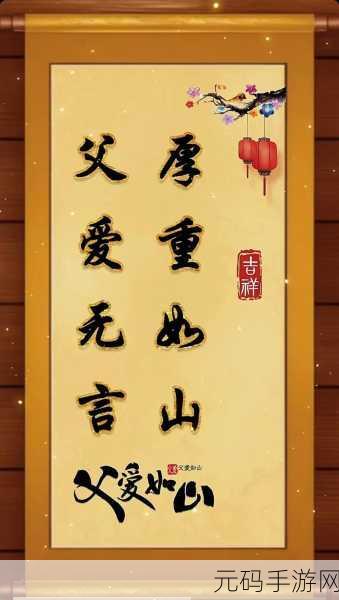 厚重如山
父爱无言
吉祥
父爱如山
父爱如山
元码手游网